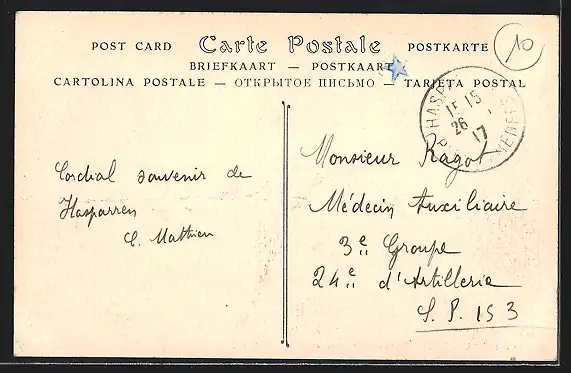 POST CARD Carte Postale POSTKARTE
BRIEFKAART — POSTKAART
CARTOLINA POSTALE — ОТКРЫТОЕ ПИСЬМО — TARJETA POSTAL
10
15 15
26
17
Cordial souvenir de
Hasparren
C. Mathieu
Monsieur Ragot
Médecin Auxiliaire
3e Groupe
24e d'Artillerie
S. P. 153